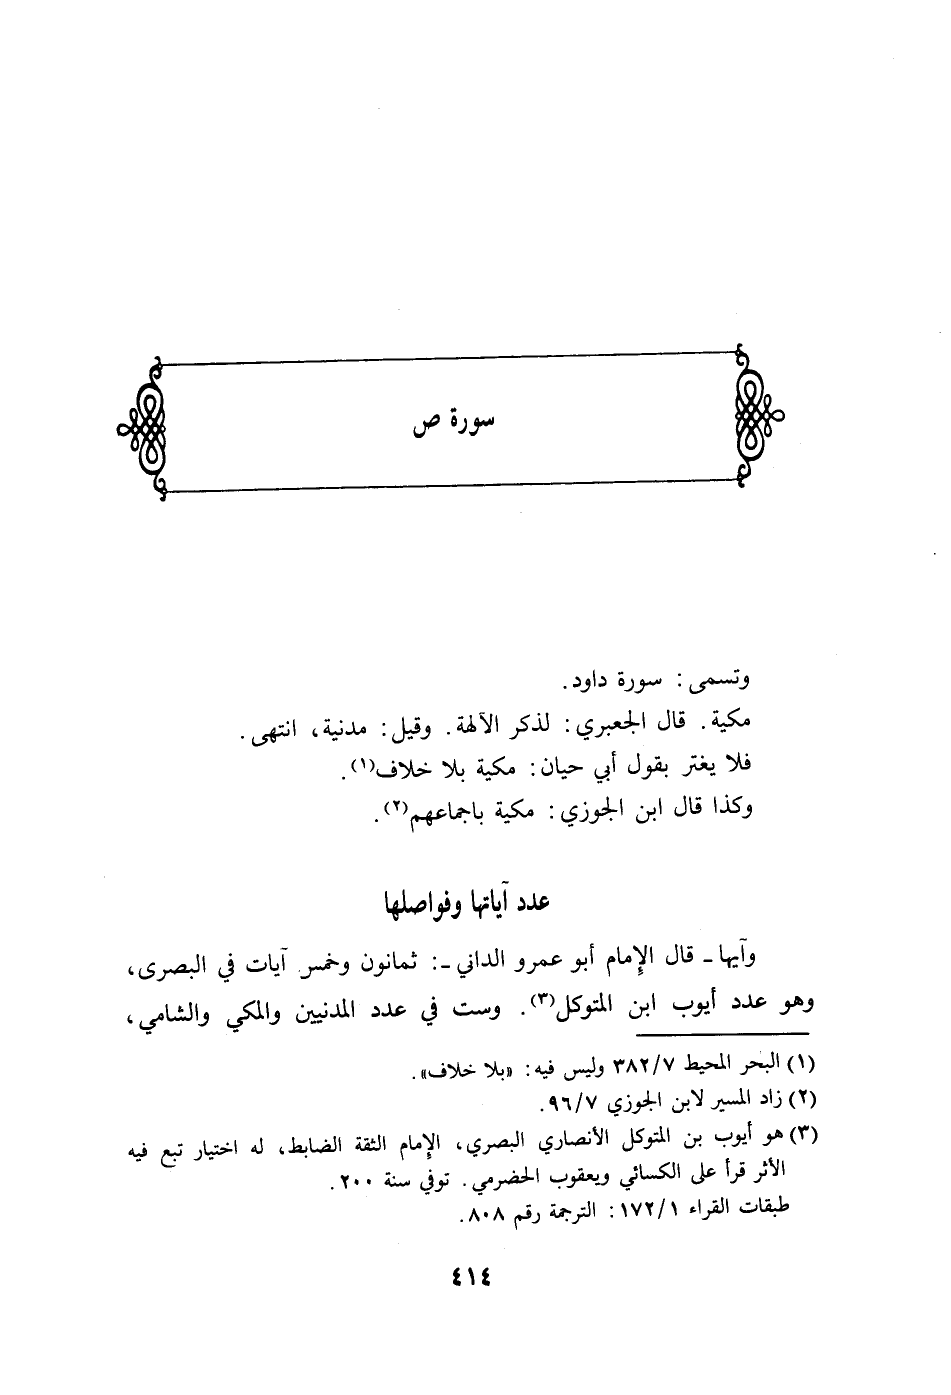 سورة ص
وتسمى: سورة داود.
مكية. قال الجعبري: لذكر الآلهة. وقيل: مدنية، انتهى.
فلا يغتر بقول أبي حيان: مكية بلا خلاف(١).
وكذا قال ابن الجوزي: مكية باجماعهم(٢).
عدد آياتها وفواصلها
وآيها ـ قال الإمام أبو عمرو الداني ـ: ثمانون وخمس آيات في البصرى،
وهو عدد أيوب ابن المتوكل(٣). وست في عدد المدنيين والمكي والشامي،
(١) البحر المحيط ٣٨٢/٧ وليس فيه: «بلا خلاف».
(٢) زاد المسير لابن الجوزي ٩٦/٧.
(٣) هو أيوب بن المتوكل الأنصاري البصري، الإمام الثقة الضابط، له اختيار تبع فيه
الأثر قرأ على الكسائي ويعقوب الحضرمي. توفي سنة ٢٠٠.
طبقات القراء ١٧٢/١: الترجمة رقم ٨٠٨.
٤١٤